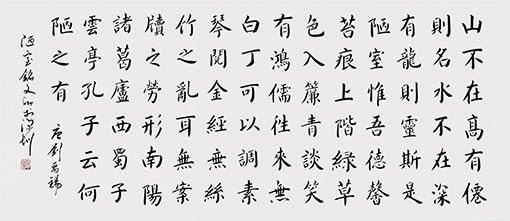 山不在高有僊
則名水不在深
有龍則靈斯是
陋室惟吾德馨
苔痕上階緑草
色入簾青談笑
有鴻儒徃來無
白丁可以調素
琴閱金經無絲
竹之亂耳無案
牘之勞形南陽
諸葛廬西蜀子
雲亭孔子云何
陋之有
唐劉禹錫
陋室銘文